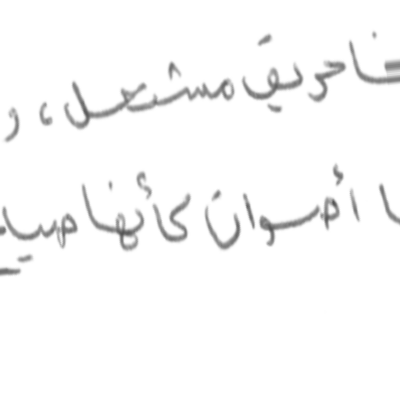 حريق مشتعل، و
أصوات كأنها صيا